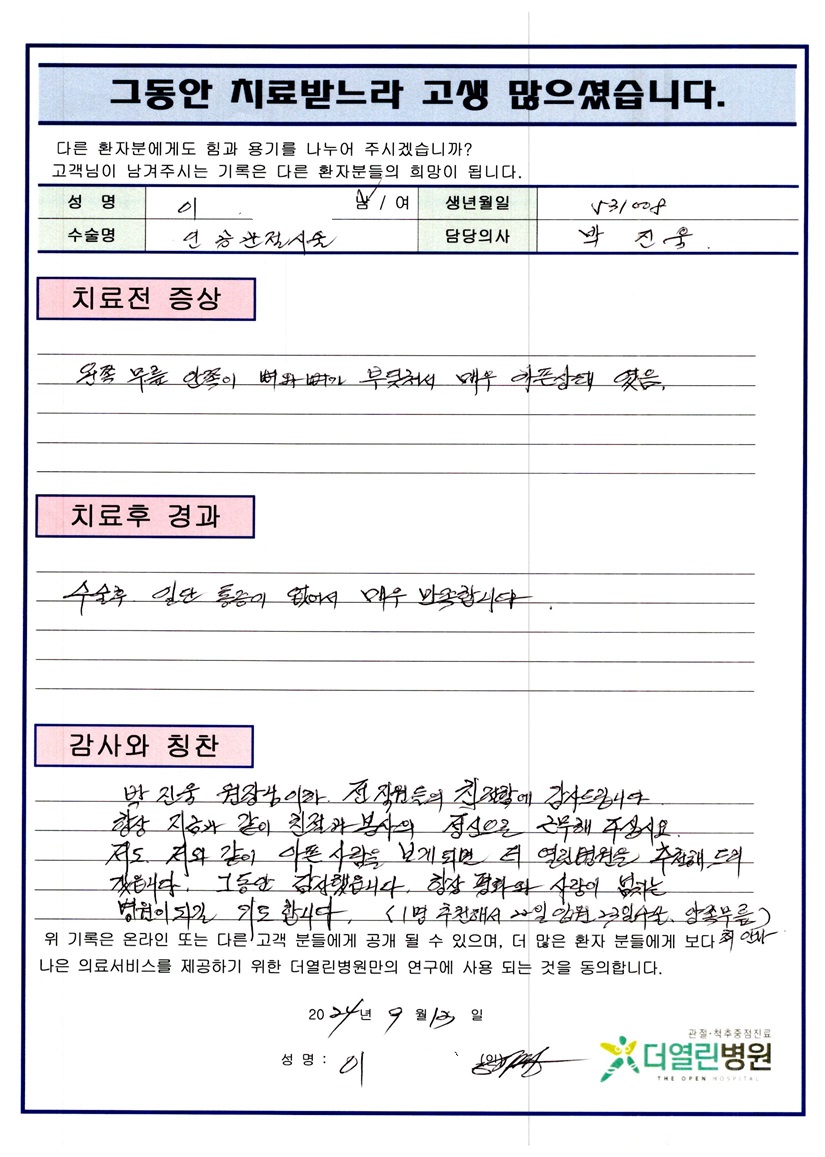 그동안 치료받느라 고생 많으셨습니다.
다른 환자분에게도 힘과 용기를 나누어 주시겠습니까?
고객님이 남겨주시는 기록은 다른 환자분들의 희망이 됩니다.
성 명 이 남 / 여 생년월일 531008
수술명 인공관절시술 담당의사 박 진웅.
치료전 증상
왼쪽 무릎 안쪽이 뼈와 뼈가 부딪혀서 매우 아픈상태 였음.
치료후 경과
수술후. 일단 통증이 없어서 매우 만족합니다.
감사와 칭찬
박 진웅 원장님이하. 전 직원들의 친절함에 감사드립니다
항상 지금과 같이 친절과 봉사의 정신으로 근무해 주십시요.
저도. 저와 같이 아픈 사람을 보게되면 더 열린병원을 추천해 드리
겠읍니다. 그동안 감사했읍니다. 항상 평화와 사랑이 넘치는
병원이되길 기도 합니다. (1명 추천해서 22일 입원 23일수술. 양쪽무릎)
위 기록은 온라인 또는 다른 고객 분들에게 공개 될 수 있으며, 더 많은 환자 분들에게 보다
나은 의료서비스를 제공하기 위한 더열린병원만의 연구에 사용 되는 것을 동의합니다.
2024년 9 월 일
성 명 : 이 (인)
관절·척추중점진료
더열린병원
THE OPEN HOSPITAL